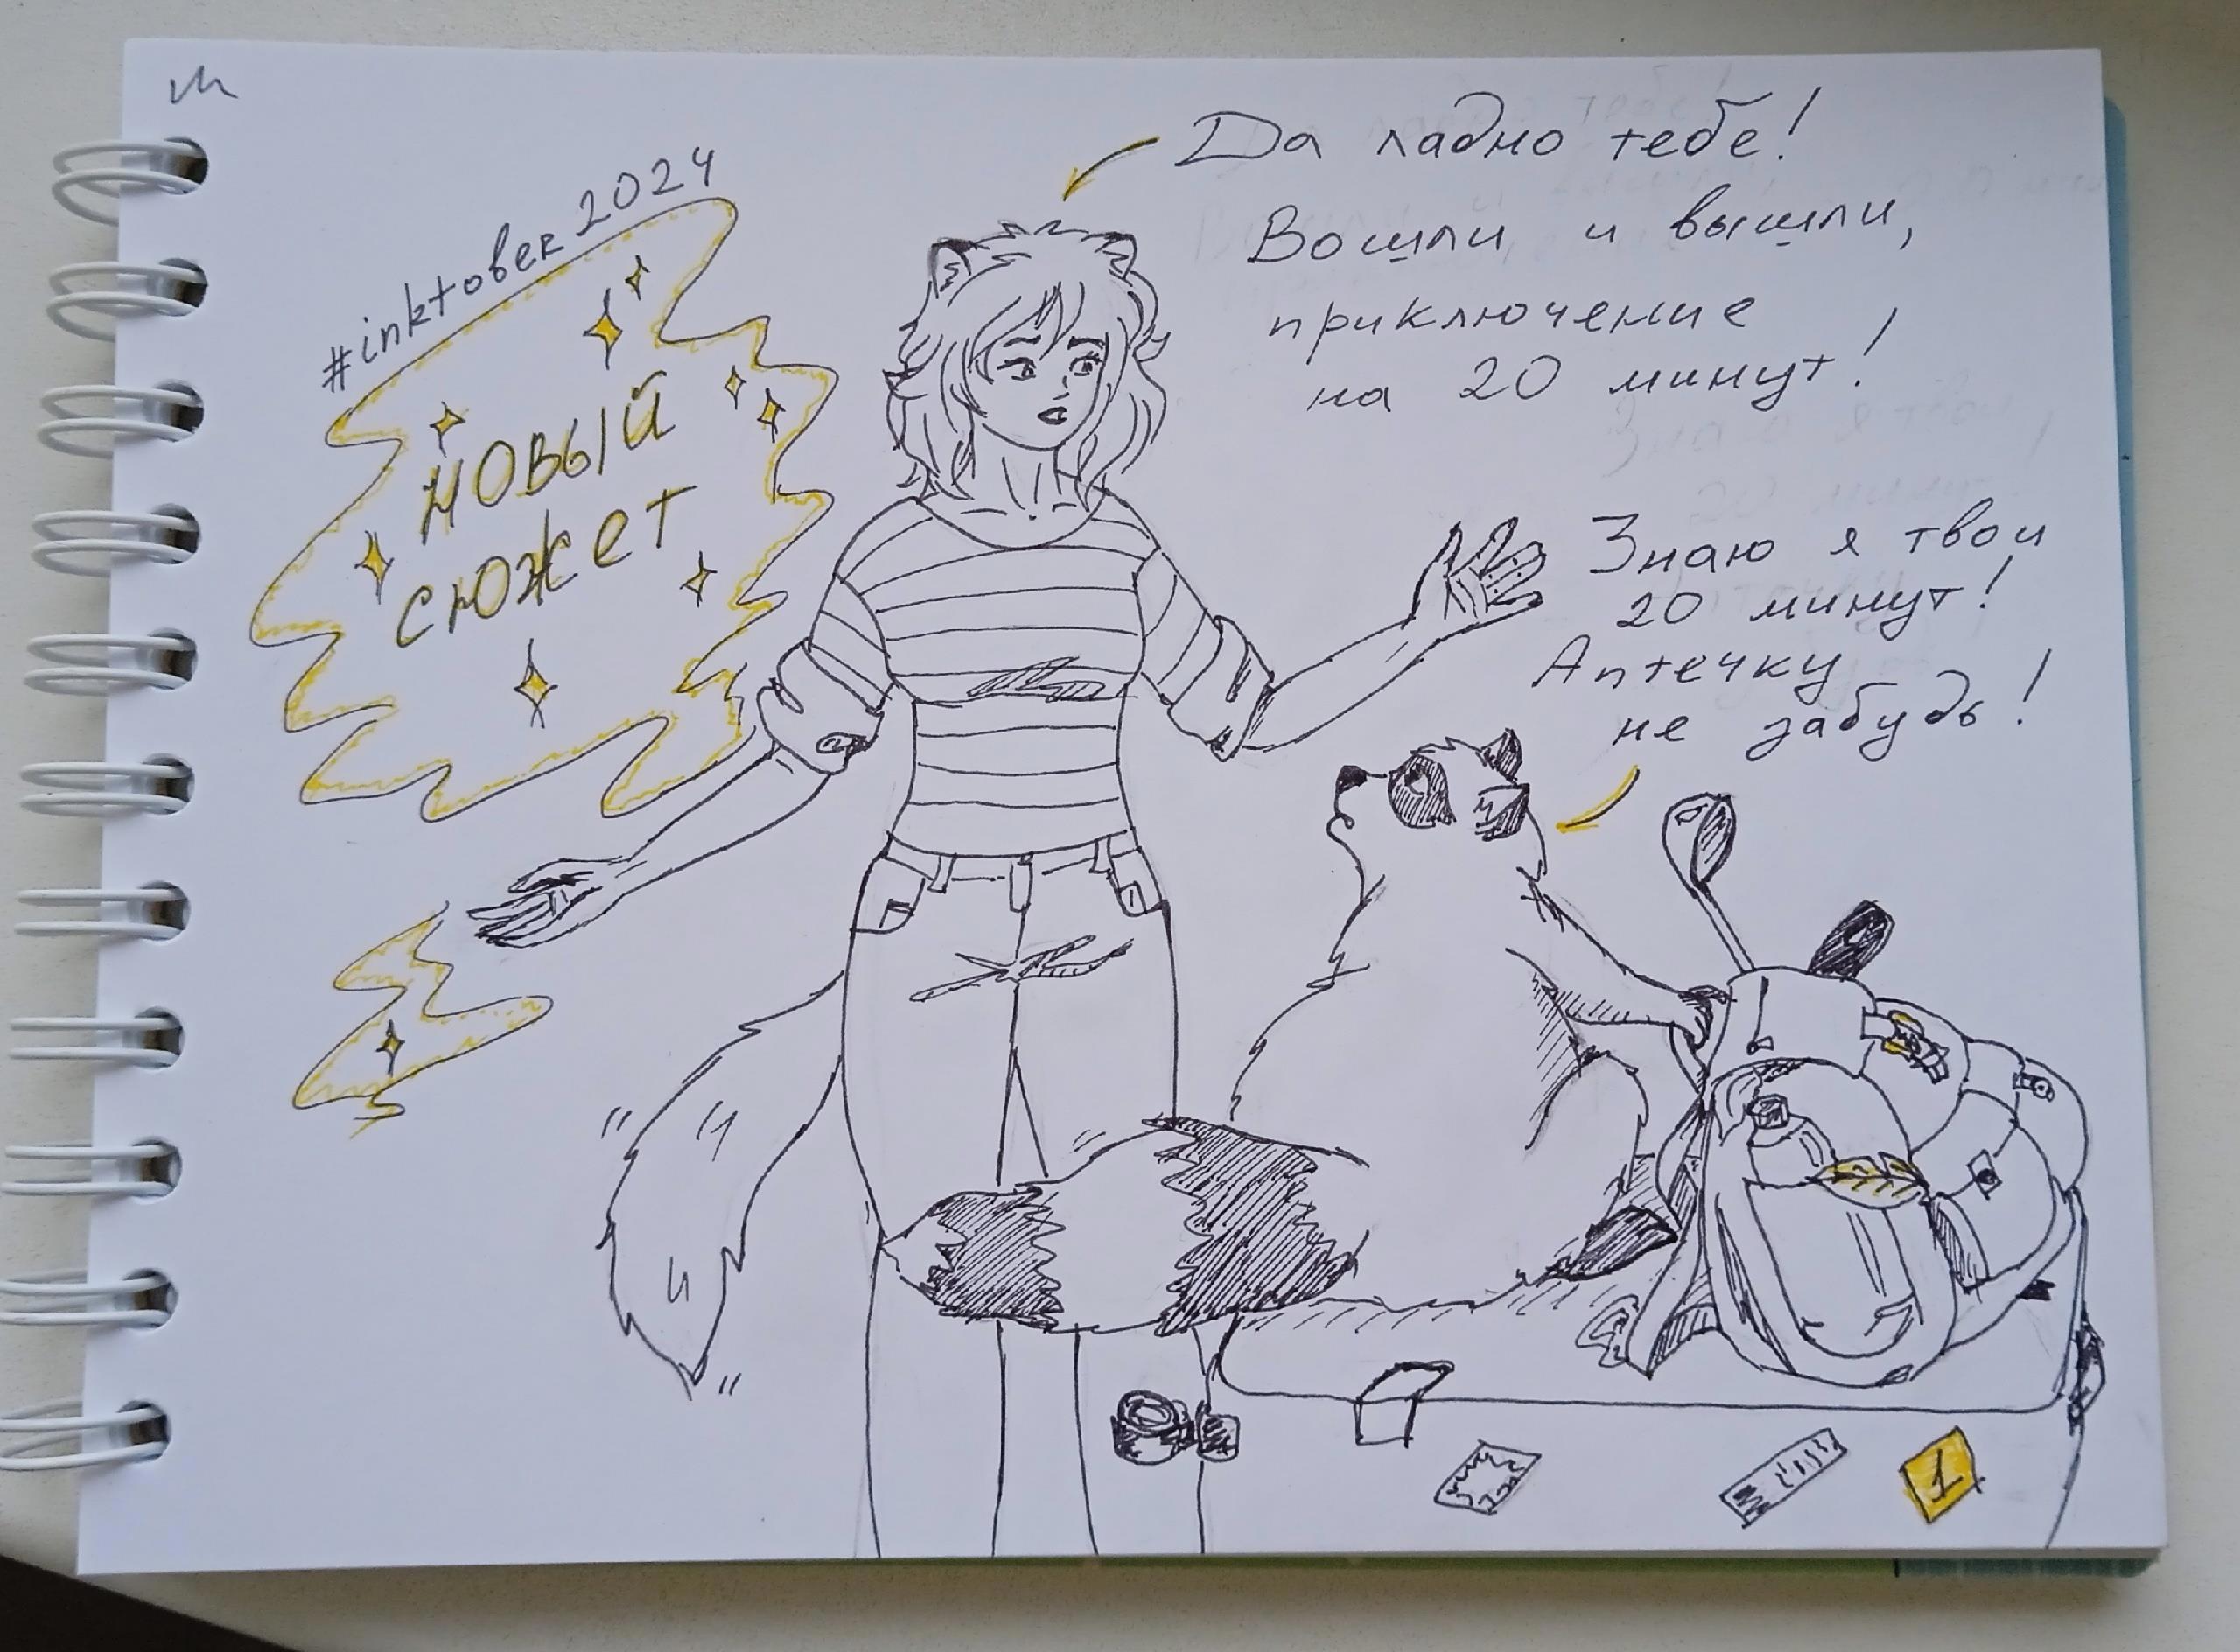 #inktober2024
новый
сюжет
Да ладно тебе!
Вошли и вышли,
приключение
на 20 минут!
Знаю я твои
20 минут!
Аптечку
не забудь!
1